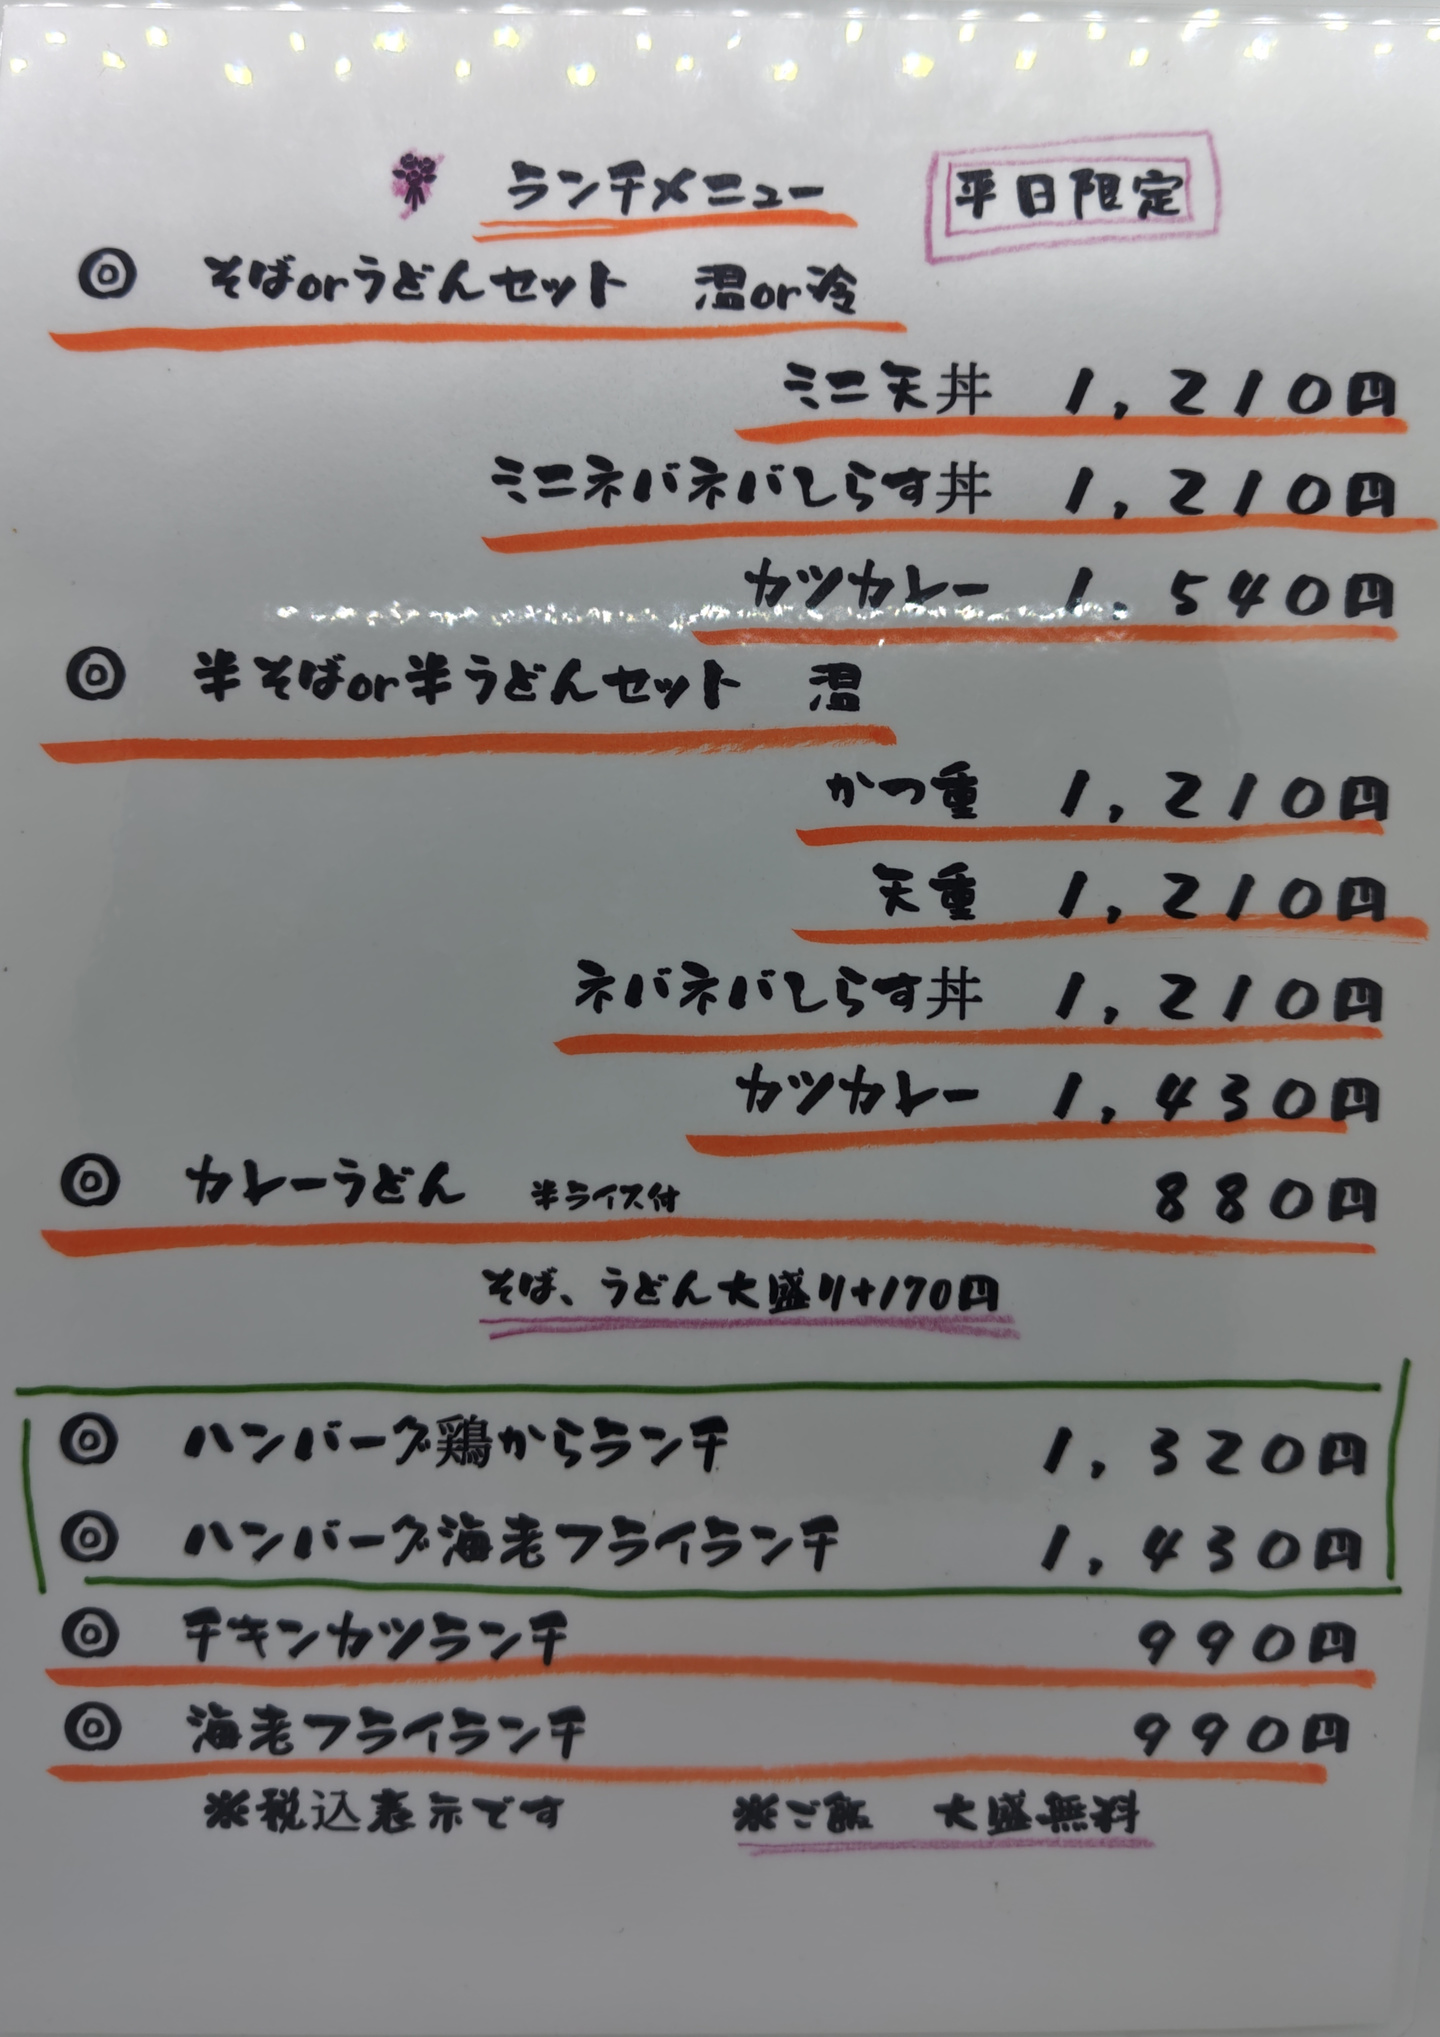 ランチメニュー 平日限定
◎ そばorうどんセット 温or冷
ミニ天丼 1,210円
ミニネバネバしらす丼 1,210円
カツカレー 1,540円
◎ 半そばor半うどんセット 温
かつ重 1,210円
天重 1,210円
ネバネバしらす丼 1,210円
カツカレー 1,430円
◎ カレーうどん 半ライス付 880円
そば、うどん大盛り+170円
◎ ハンバーグ鶏からランチ 1,320円
◎ ハンバーグ海老フライランチ 1,430円
◎ チキンカツランチ 990円
◎ 海老フライランチ 990円
※税込表示です ※ご飯 大盛無料